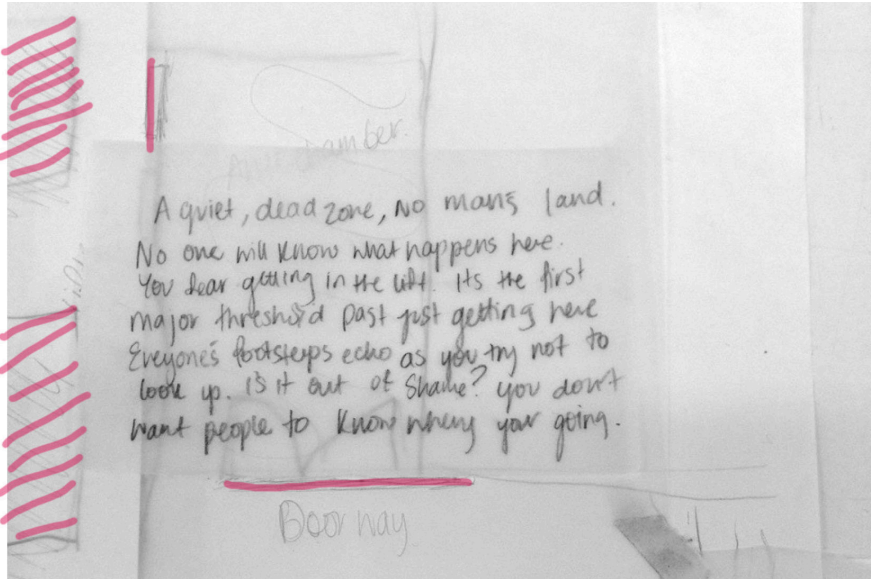 Antechamber.
A quiet, dead zone, No mans land.
No one will know what happens here.
You fear getting in the lift. Its the first
major threshold past just getting here
Eveyone's footsteps echo as you try not to
look up. Is it out of Shame? you don't
want people to know where your going.
Doorway